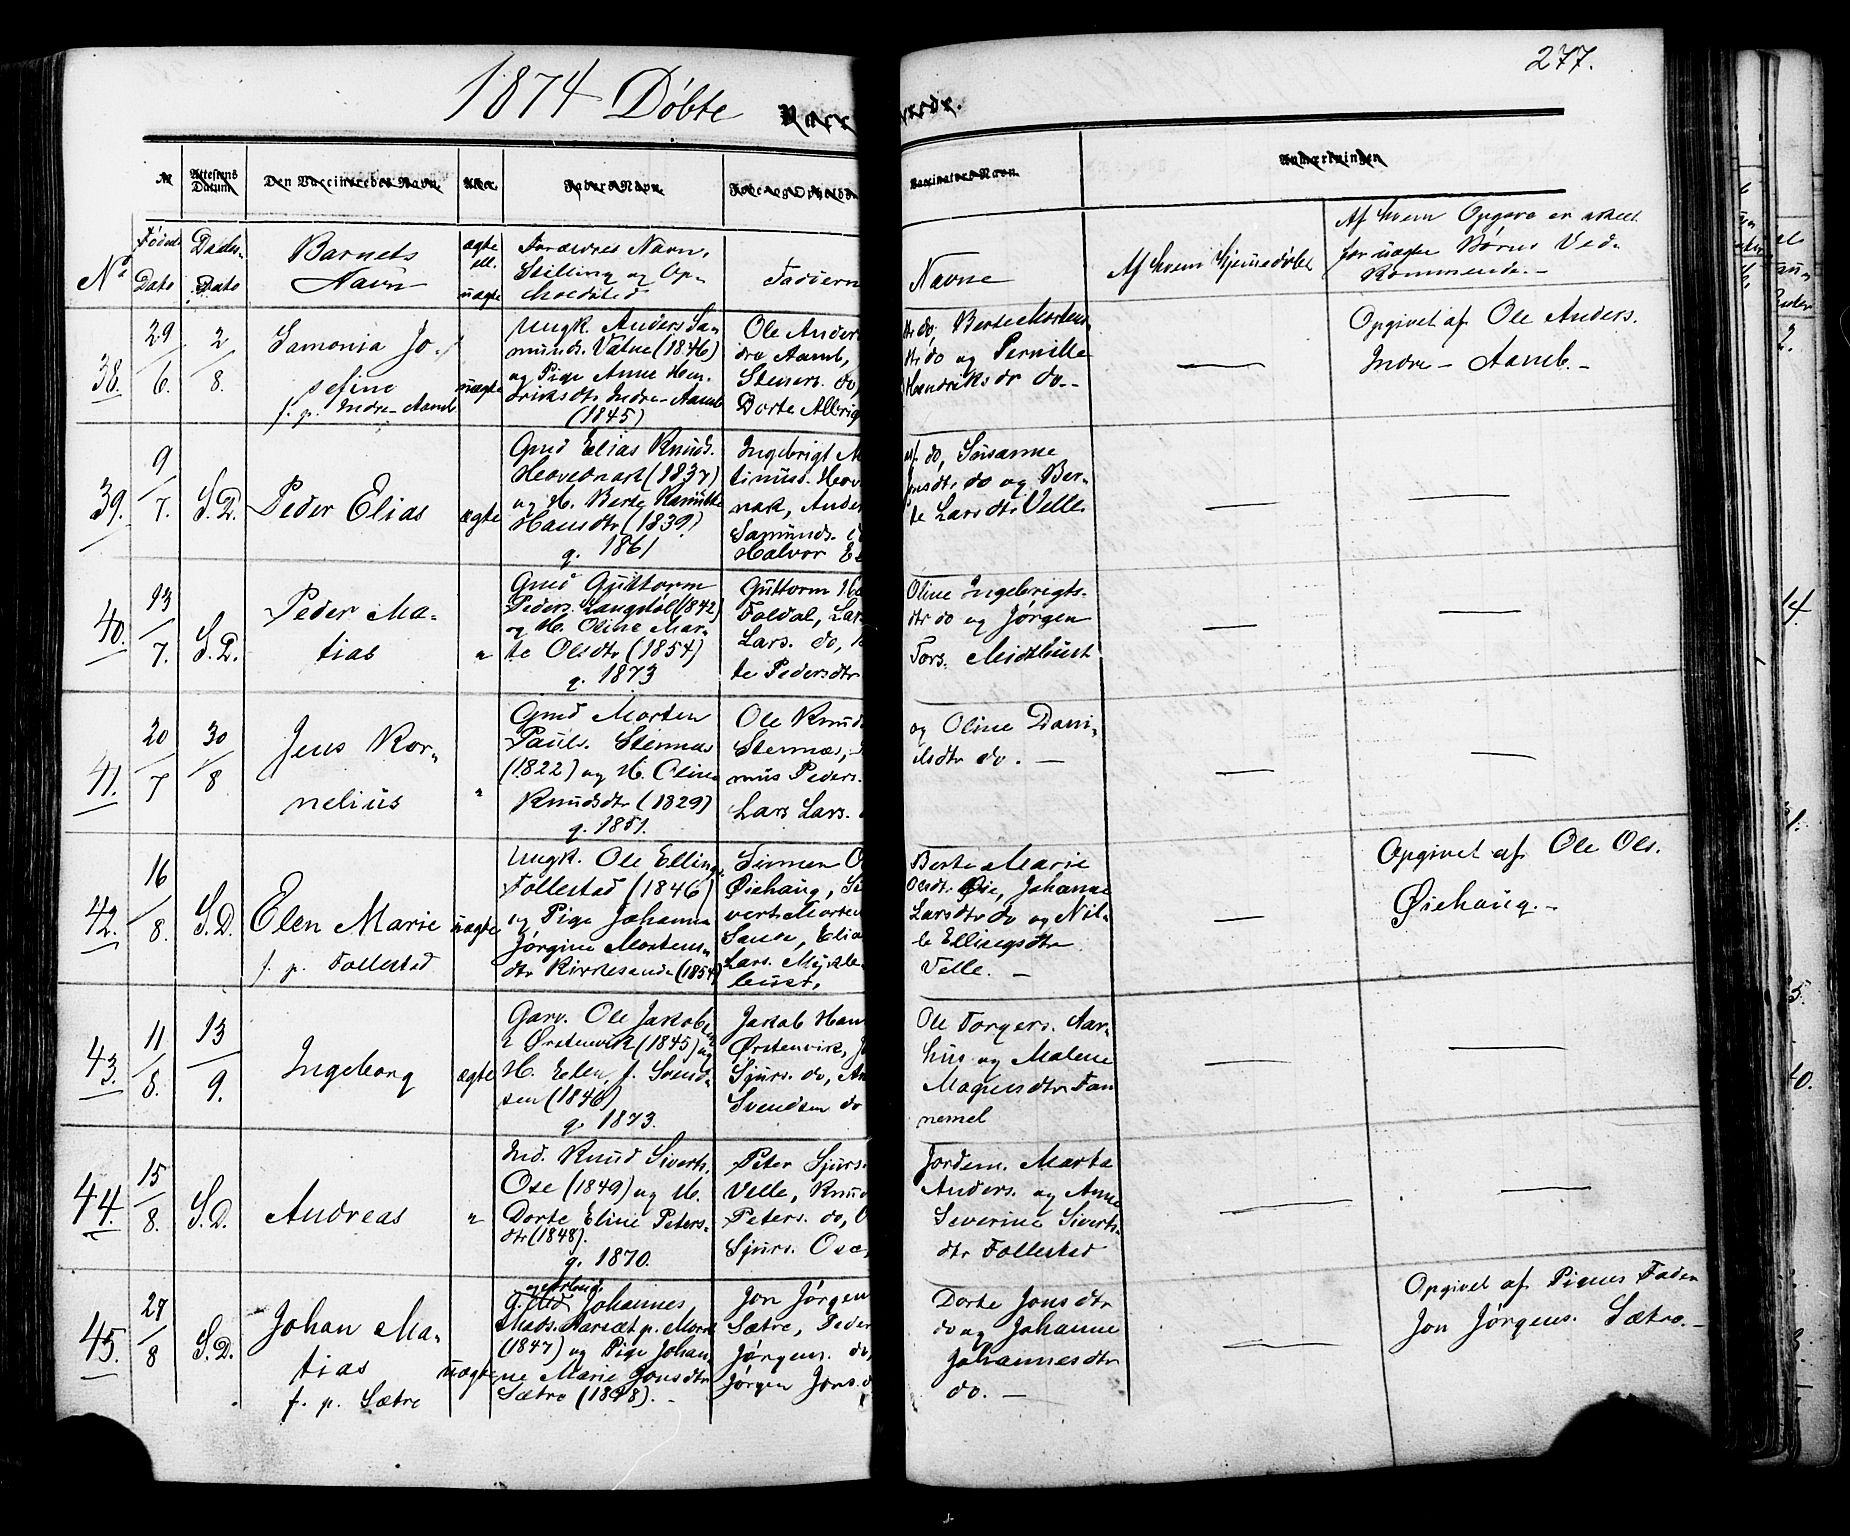 277.
1874 Døbte
Den Vaccineredes Navn
Attestens Datum
Nº
Føds. Dato
Daabs. Dato
Barnets Navn
ægte ell. uægte
Forældres Navn, Stilling og Opholdsted
Faddern
Navne
Af hvem hjemmedøbt
Af hvem Opgave er skeet for uægte Børns Vedkommende. -
38.
29/6.
2/8.
Samonia Jo-
sefine
f. p. Indre-Aamb
uægte
Ungk. Anders Sa-
munds. Vatne (1846)
og Pige Anne Hen-
driksdtr Indre-Aamb
(1845)
Ole Ander
dre Aamb,
Steners. do,
Dorte Albrig
do, Berte Mortens
dtr do og Pernille
Hendriksdr do.-
—
Opgivet af Ole Anders.
Indre - Aamb. -
39.
9/7.
S. D.
Peder Elias
ægte
Gmd Elias Knuds.
Hovednak (1837)
og H. Berte
Hansdtr (1839)
g. 1861
Ingebrigt M
timusd. Hov
nak, Ander
Samunds.
Halvor
do, Susanne
Jensdtr do og Ber-
te Larsdtr Velle
—
—
40.
13/7.
S. D.
Peder Ma-
tias
"
Gmd Guttorm
Peders. Langstøl (1842)
og H. Oline Mar-
te Olsdtr (1854)
g. 1873
Guttorm
Foldal, Lar
Lars. do,
te Pedersdtr
Oline Ingebrigts-
dtr do og Jørgen
Tors. Midtbust
—
—
41.
20/7
30/8
Jens Kor-
nelius
"
Gmd Morten
Pauls. Stennæs
(1822) og H. Oline
Knudsdtr (1829)
g. 1851.
Ole Knud
Stennæs,
mus Peders.
Lars Lars.
og Oline Dani-
elsdtr do. —
—
—
42.
16/8.
S. D.
Elen Marie
f. p. Follestad
uægte
Ungk. Ole Elling.
Follestad (1846)
og Pige Johanne
Jørgine Mortens-
dtr Kirkesande (1854)
Simmen O
Øiehaug, Si
vert Morten
Sande, Elia
Lars. Mykle-
bust,
Berte Marie
Olsdtr. Øie, Johanne
Larsdtr do og Nil-
le Ellingsdtr
Velle. —
—
Opgivet af Ole Ols.
Øiehaug. -
43.
11/8.
13/9.
Ingeborg
ægte
Garv. Ole Jakob
Ørstenvik (1845) og
H. Elen, f. Svend-
sen (1846)
g. 1873.
Jakob Han
Ørstenvik,
Sjurs. do, An
Svendsen do
Ole Torgers. Aar-
hus og Malene
Magnusdtr Fan
nemel
—
—
44.
15/8.
S. D.
Andreas
"
Ind. Knud Siverts.
Ose (1849) og H.
Dorte Eline Peters-
dtr (1848).
g. 1870.
Peter Sjurs.
Velle, Knud
Peters. do,
Sjurs. Ose,
Jordem. Marta
Anders. og Anne
Severine Siverts-
dtr Follestad
—
—
45.
27/8
S. D.
Johan Ma-
tias
f. p. Sætre
uægte
Johannes
Mads. Aarsæt p. Mork
(1847) og Pige Johan-
ne Marie Jonsdtr
Sætre (1848). -
Jon Jørgen
Sætre, Peder
Jørgens. do,
Jørgen Jons. d
Dorte Jonsdtr
do og Johanne
Johannesdtr
do. —
—
Opgivet af Pigens Fader
Jon Jørgens. Sætre. -